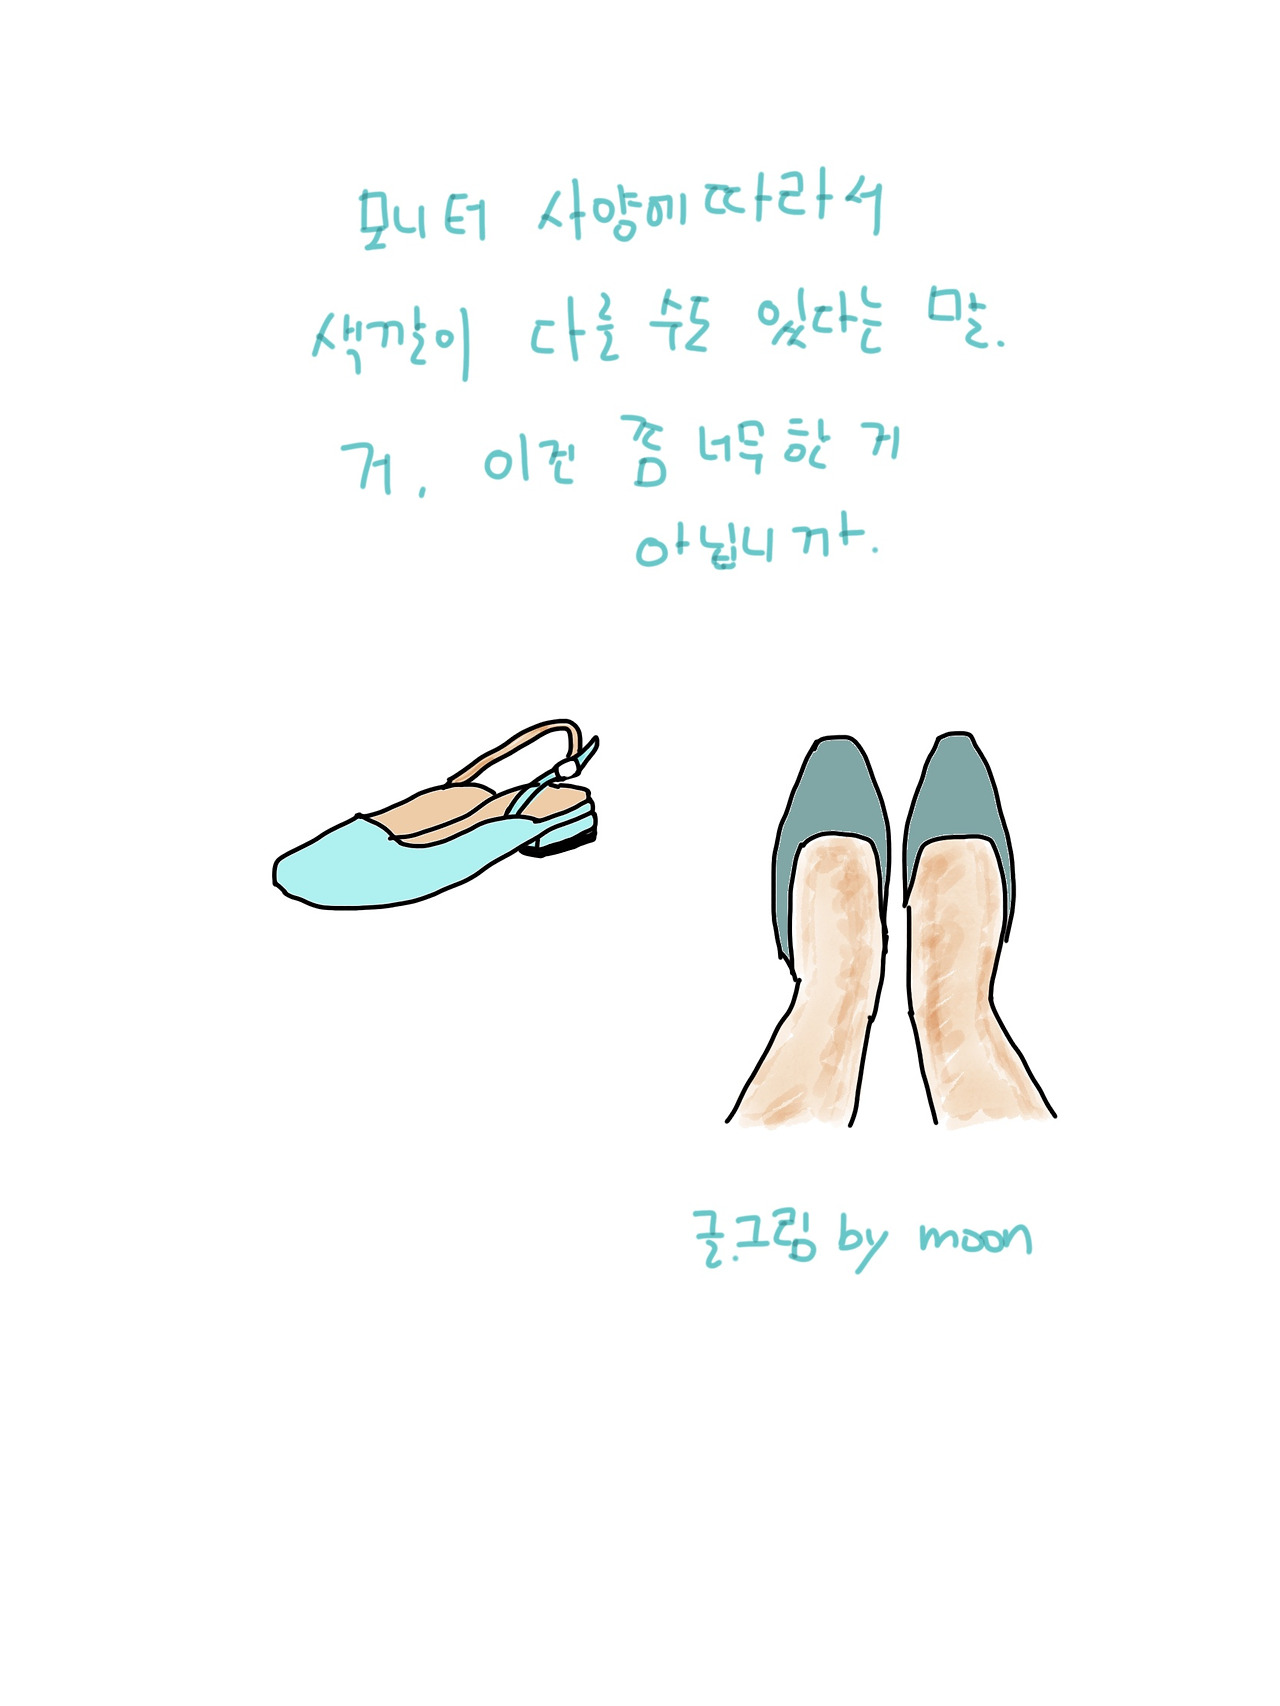 모니터 사양에 따라서
색깔이 다를 수도 있다는 말.
거, 이건 쫌 너무한 거
아닙니까.
글.그림 by moon